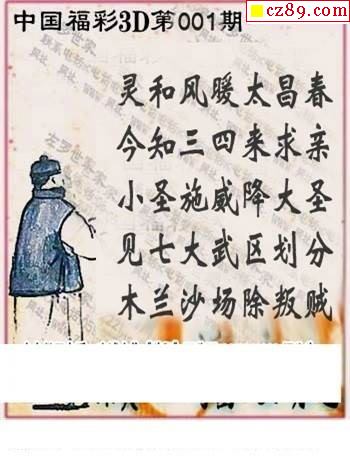 cz89.com
中国福彩3D第001期
灵和风暖太昌春
今知三四来求亲
小圣施威降大圣
见七大武区划分
木兰沙场除叛贼